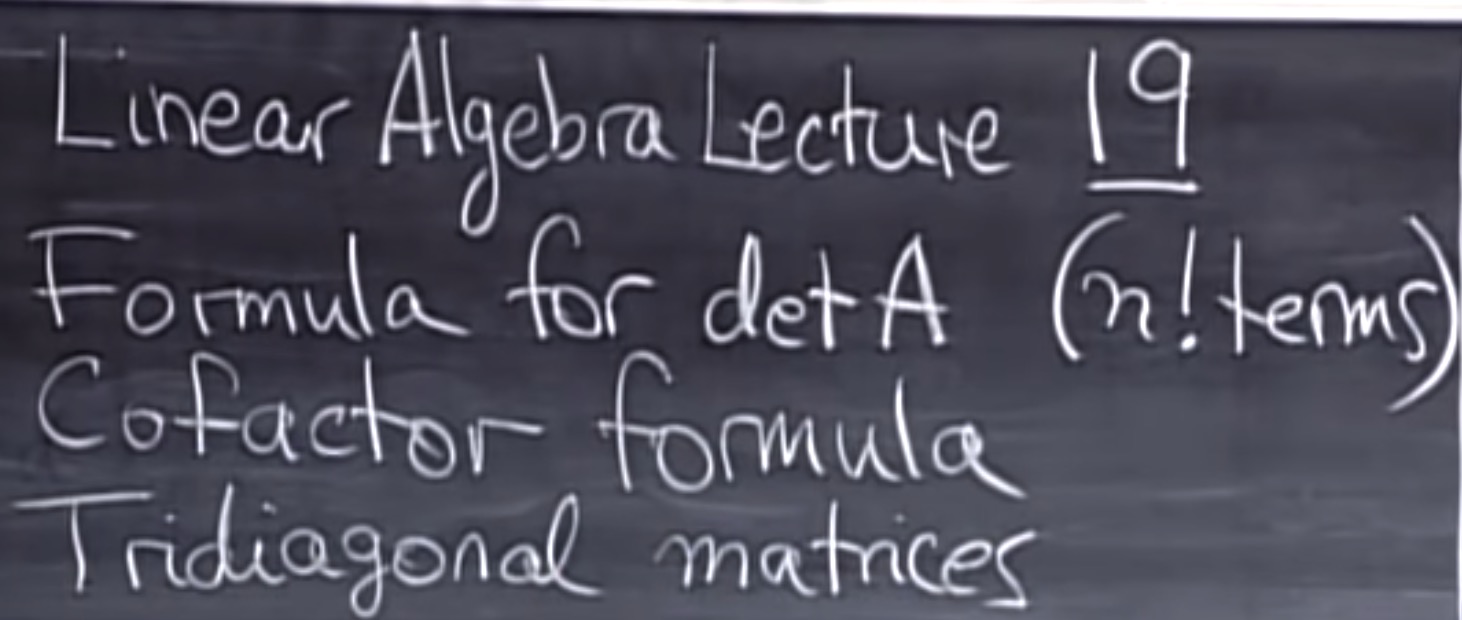 Linear Algebra Lecture 19
Formula for det A (n! terms)
Cofactor formula
Tridiagonal matrices